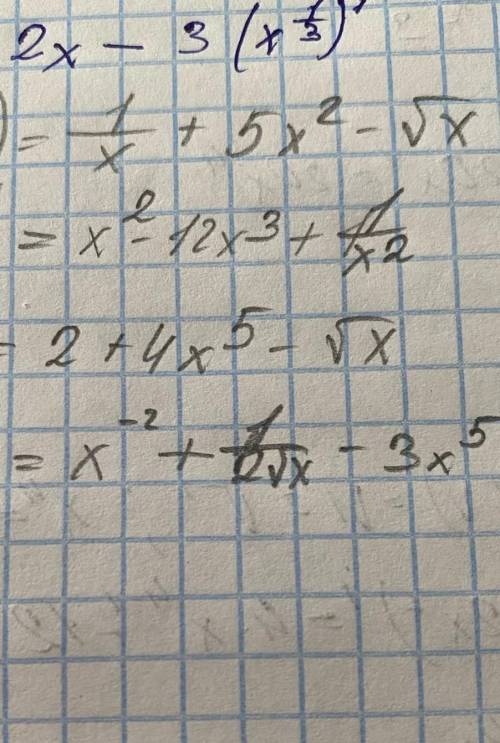 2x - 3 (x^{1/3})'
) = 1/x + 5x² - √x
= x² - 12x³ + 1/x²
= 2 + 4x⁵ - √x
= x⁻² + 1/(2√x) - 3x⁵